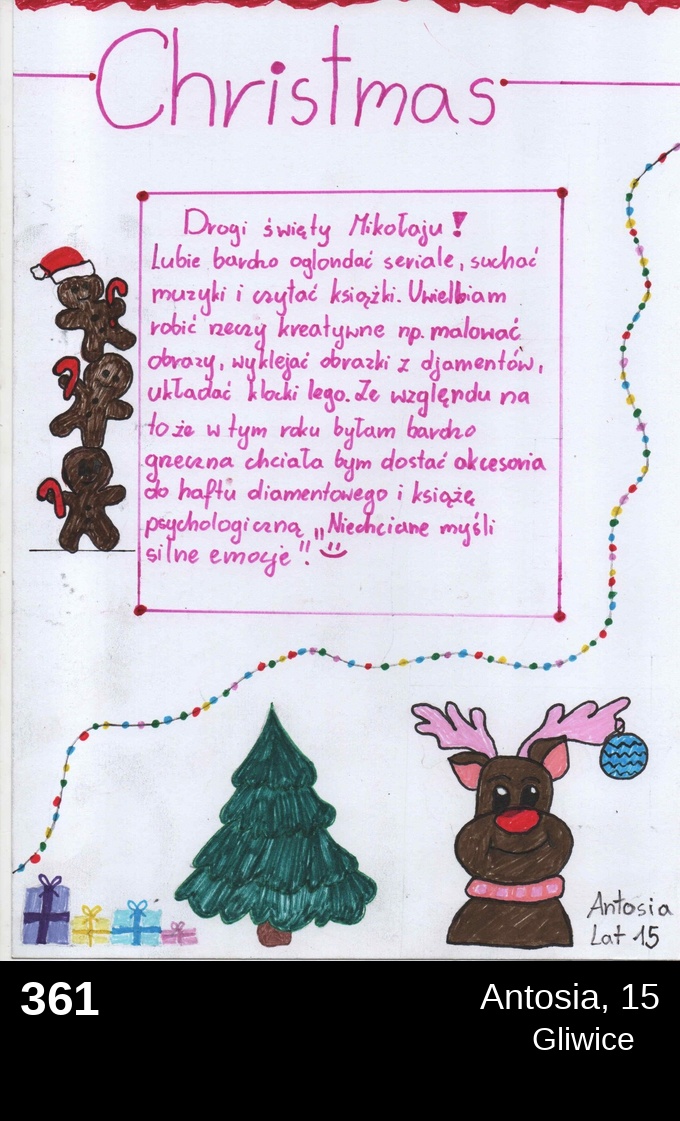 Christmas
Drogi święty Mikołaju!
Lubie bardzo oglondać seriale, suchać
muzyki i czytać książki. Uwielbiam
robić rzeczy kreatywne np. malować
obrazy, wyklejać obrazki z djamentów,
układać klocki lego. Ze względu na
to że w tym roku byłam bardzo
grzeczna chciała bym dostać akcesoria
do haftu diamentowego i książę
psychologiczną „Niechciane myśli
silne emocje"! :)
Antosia
Lat 15
361
Antosia, 15
Gliwice